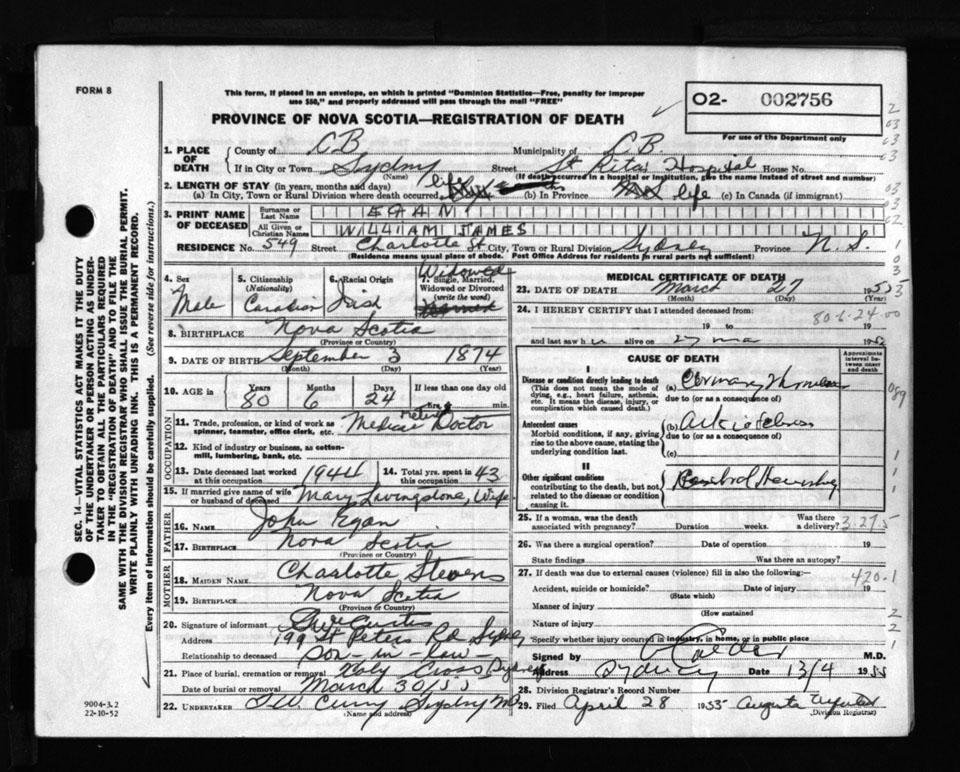 FORM 8
This form, if placed in an envelope, on which is printed "Dominion Statistics—Free, penalty for improper
use $50," and properly addressed will pass through the mail "FREE"
PROVINCE OF NOVA SCOTIA—REGISTRATION OF DEATH
O2- 002756
For use of the Department only
1. PLACE OF DEATH
County of C B Municipality of C. B.
If in City or Town Sydney Street St Ritas Hospital House No.
(Name) (If death occurred in a hospital or institution, give the name instead of street and number)
2. LENGTH OF STAY (in years, months and days)
(a) In City, Town or Rural Division where death occurred life (b) In Province life (c) In Canada (if immigrant)
3. PRINT NAME OF DECEASED
Surname or Last Name EGAN
All Given or Christian Names WILLIAM JAMES
RESIDENCE No. 549 Street Charlotte St City, Town or Rural Division Sydney Province N. S.
(Residence means usual place of abode. Post Office Address for residents in rural parts not sufficient)
4. Sex Male
5. Citizenship (Nationality) Canadian
6. Racial Origin Irish
7. Single, Married, Widowed or Divorced (write the word) Widowed
8. BIRTHPLACE Nova Scotia
(Province or Country)
9. DATE OF BIRTH September 3 1874
(Month) (Day) (Year)
10. AGE in Years 80 Months 6 Days 24 If less than one day old hrs. min.
OCCUPATION
11. Trade, profession, or kind of work as spinner, teamster, office clerk, etc. Medical Doctor
12. Kind of industry or business, as cotton-mill, lumbering, bank, etc.
13. Date deceased last worked at this occupation 1944
14. Total yrs. spent in this occupation 43
15. If married give name of wife or husband of deceased Mary Livingstone, Wife
FATHER
16. NAME John Egan
17. BIRTHPLACE Nova Scotia
(Province or Country)
MOTHER
18. MAIDEN NAME Charlotte Stevens
19. BIRTHPLACE Nova Scotia
(Province or Country)
20. Signature of informant Curtis
Address 199 St Peters Rd Sydney
Relationship to deceased son-in-law-
21. Place of burial, cremation or removal Holy Cross Sydney
Date of burial or removal March 30/55
22. UNDERTAKER T W Curry Sydney NS
(Name and address)
MEDICAL CERTIFICATE OF DEATH
23. DATE OF DEATH March 27 1955
(Month) (Day) (Year)
24. I HEREBY CERTIFY that I attended deceased from:
80-6-24-00
19 to 19
and last saw h alive on 27 19
CAUSE OF DEATH
Approximate interval between onset and death
I
Disease or condition directly leading to death
(This does not mean the mode of dying, e.g., heart failure, asthenia, etc. It means the disease, injury, or complication which caused death.)
(a)
due to (or as a consequence of)
Antecedent causes
Morbid conditions, if any, giving rise to the above cause, stating the underlying condition last.
(b)
due to (or as a consequence of)
(c)
II
Other significant conditions
contributing to the death, but not related to the disease or condition causing it.
25. If a woman, was the death associated with pregnancy? Duration weeks. Was there a delivery?
3-27-5
26. Was there a surgical operation? Date of operation 19
State findings Was there an autopsy?
27. If death was due to external causes (violence) fill in also the following:—
420-1
Accident, suicide or homicide? Date of injury 19
(State which)
Manner of injury
(How sustained
Nature of injury
Specify whether injury occurred in industry, in home, or in public place
Signed by Calder M.D.
Address Sydney Date 13/4 1955
28. Division Registrar's Record Number
29. Filed April 28 1955 Augusta
(Division Registrar)
SEC. 14—VITAL STATISTICS ACT MAKES IT THE DUTY
OF THE UNDERTAKER OR PERSON ACTING AS UNDER-
TAKER TO OBTAIN ALL THE PARTICULARS REQUIRED
IN THE "REGISTRATION OF DEATH" AND TO FILE THE
SAME WITH THE DIVISION REGISTRAR WHO SHALL ISSUE THE BURIAL PERMIT.
WRITE PLAINLY WITH UNFADING INK. THIS IS A PERMANENT RECORD.
Every item of information should be carefully supplied. (See reverse side for instructions.)
9004-3.2
22-10-52